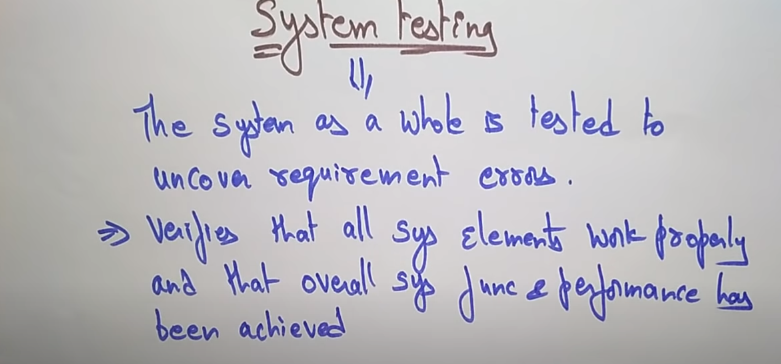 System testing
⇓
The system as a whole is tested to
uncover requirement errors.
⇒ Verifies that all sys elements work properly
and that overall sys func & performance has
been achieved